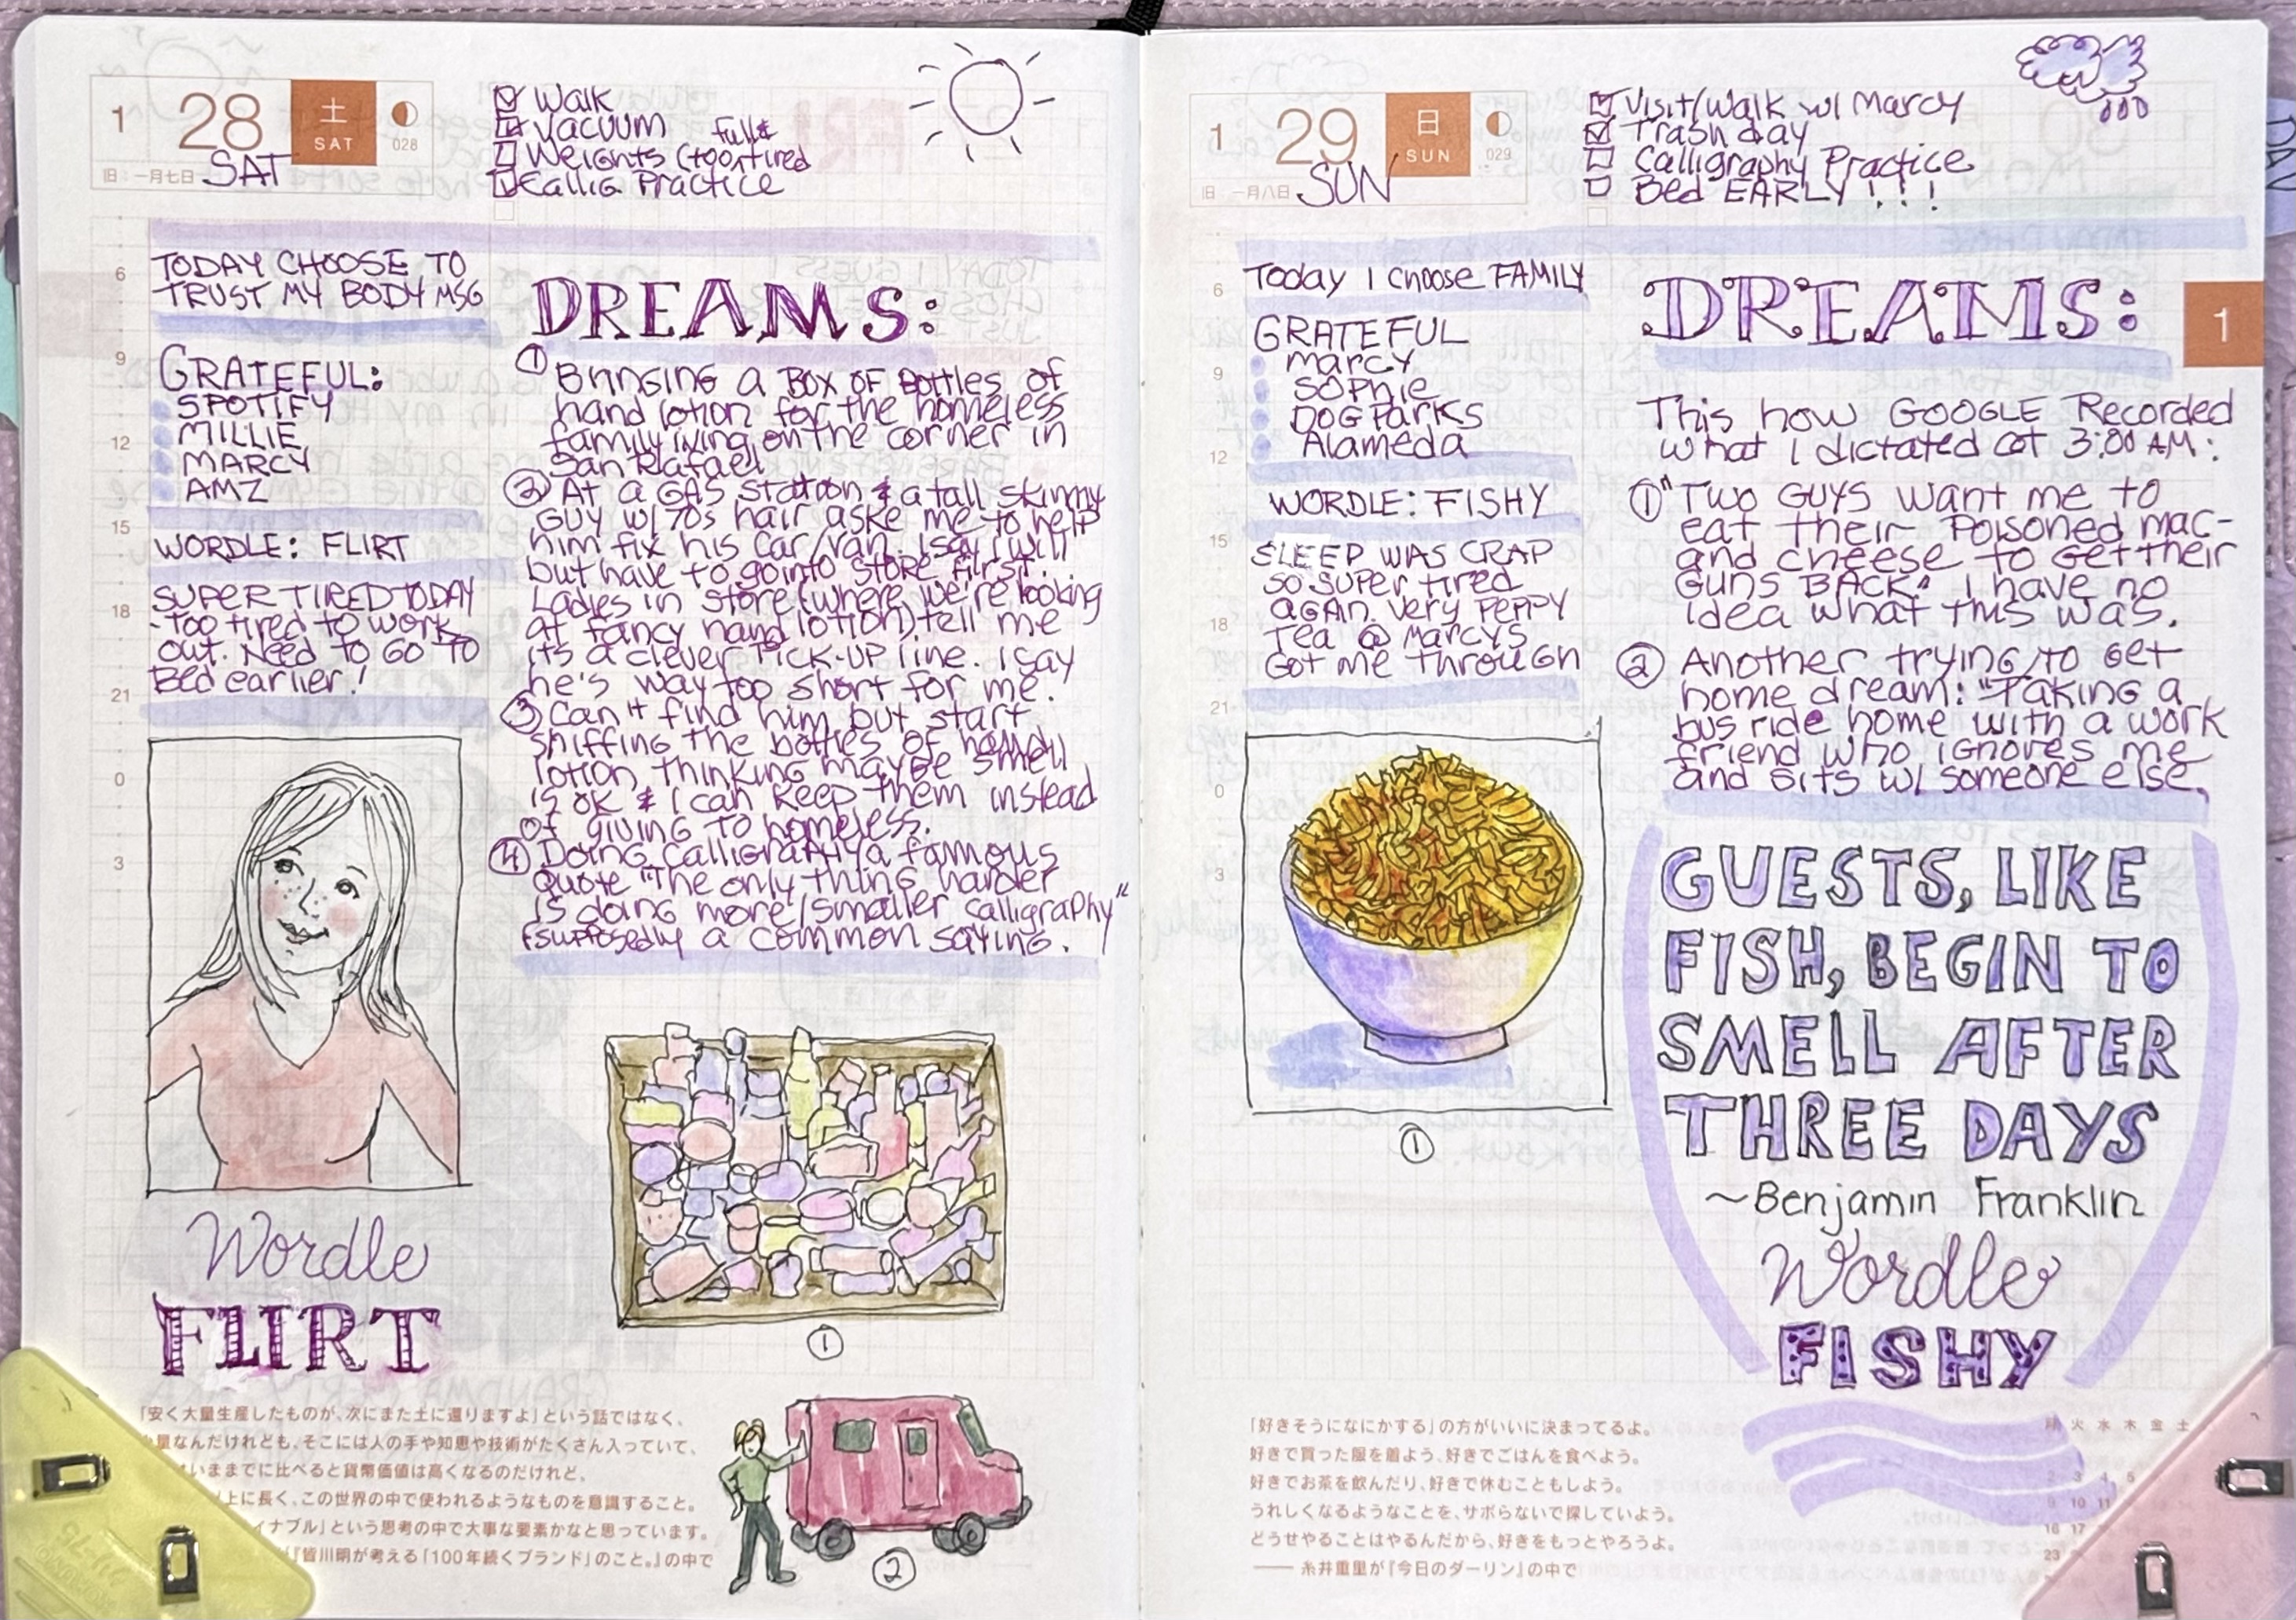 1 28 土 SAT 028
旧:一月七日 SAT
Walk
Vacuum
Weights (too tired
Callig Practice
TODAY CHOOSE TO
TRUST MY BODY MSG
GRATEFUL:
SPOTIFY
MILLIE
MARCY
AMZ
WORDLE: FLIRT
SUPER TIRED TODAY
-too tired to work
out. Need to GO TO
Bed earlier!
6
9
12
15
18
21
0
3
DREAMS:
① Bringing a BOX OF BOTTLES OF
hand lotion for the homeless
family living on the corner in
San Rafael
② At a GAS Station & a tall skinny
GUY w/70s hair aske me to help
him fix his car/van. I say I will
but have to go into store first.
Ladies in store (where we're looking
at fancy hand lotion) tell me
its a clever PICK-UP line. I say
he's way too short for me.
③ Can't find him but start
sniffing the bottles of hand
lotion thinking maybe smell
is ok & I can keep them instead
of giving to homeless.
④ Doing calligraphy a famous
quote "The only thing harder
is doing more/smaller calligraphy"
supposedly a common saying.
Wordle
FLIRT
①
②
「安く大量生産したものが、次にまた土に還りますよ」という話ではなく、
量なんだけれども、そこには人の手や知恵や技術がたくさん入っていて、
いままでに比べると貨幣価値は高くなるのだけれど、
上に長く、この世界の中で使われるようなものを意識すること。
イナブル」という思考の中で大事な要素かなと思っています。
『皆川明が考える「100年続くブランド」のこと。』の中で
1 29 日 SUN 029
旧 一月八日 SUN
Visit/Walk w/ Marcy
Trash day
Calligraphy Practice
Bed EARLY!!!
Today I Choose FAMILY
GRATEFUL
Marcy
Sophie
DOG Parks
Alameda
WORDLE: FISHY
SLEEP WAS CRAP
SO SUPER tired
again. Very PEPPY
Tea @ Marcys
Got me through
6
9
12
15
18
21
0
3
DREAMS:
1
This how GOOGLE Recorded
what I dictated at 3:00 AM:
① "Two GUYS want me to
eat their Poisoned mac-
and cheese to get their
GUNS BACK" I have no
idea what this was.
② Another trying to get
home dream: "Taking a
bus ride home with a work
friend who ignores me
and sits w/ someone else.
①
GUESTS, LIKE
FISH, BEGIN TO
SMELL AFTER
THREE DAYS
~Benjamin Franklin
Wordle
FISHY
「好きそうになにかする」の方がいいに決まってるよ。
好きで買った服を着よう、好きでごはんを食べよう。
好きでお茶を飲んだり、好きで休むこともしよう。
うれしくなるようなことを、サボらないで探していよう。
どうせやることはやるんだから、好きをもっとやろうよ。
—— 糸井重里が『今日のダーリン』の中で
月 火 水 木 金 土
2 3 4 5
9 10 11
16 17
23